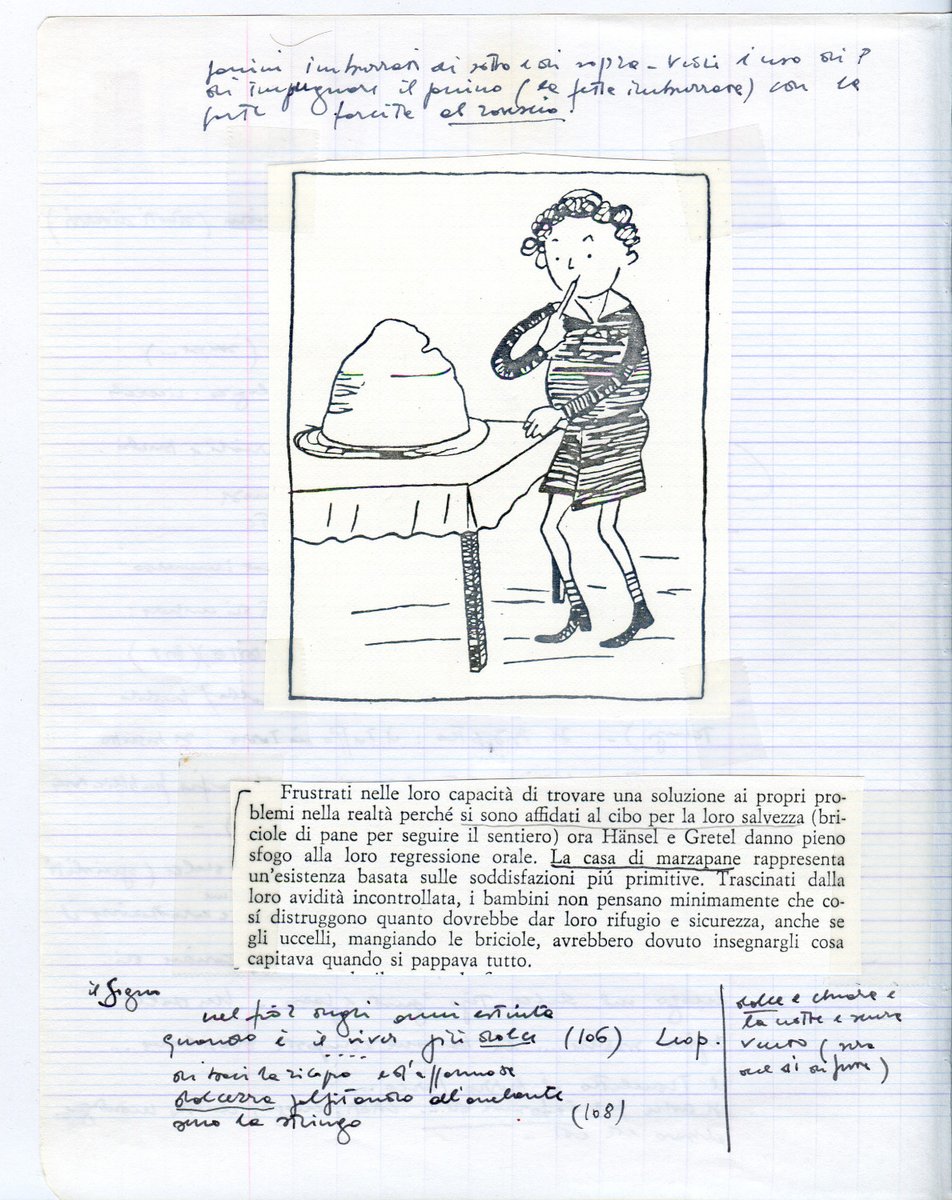 panini imburrati di sotto e di sopra - vedi l'uso di
di impugnare il panino (la fetta imburrata) con la
parte farcita al rovescio.
Frustrati nelle loro capacità di trovare una soluzione ai propri pro-
blemi nella realtà perché si sono affidati al cibo per la loro salvezza (bri-
ciole di pane per seguire il sentiero) ora Hänsel e Gretel danno pieno
sfogo alla loro regressione orale. La casa di marzapane rappresenta
un'esistenza basata sulle soddisfazioni piú primitive. Trascinati dalla
loro avidità incontrollata, i bambini non pensano minimamente che co-
sí distruggono quanto dovrebbe dar loro rifugio e sicurezza, anche se
gli uccelli, mangiando le briciole, avrebbero dovuto insegnargli cosa
capitava quando si pappava tutto.
il Sogno
nel fior degli anni estinta
quando è il viver più dolce (106) Leop.
di baci la ricopro e d'affannosa
dolcezza palpitando all'anelante
seno la stringo (108)
dolce e chiara è
la notte e senza
vento (sera
del dì di festa)